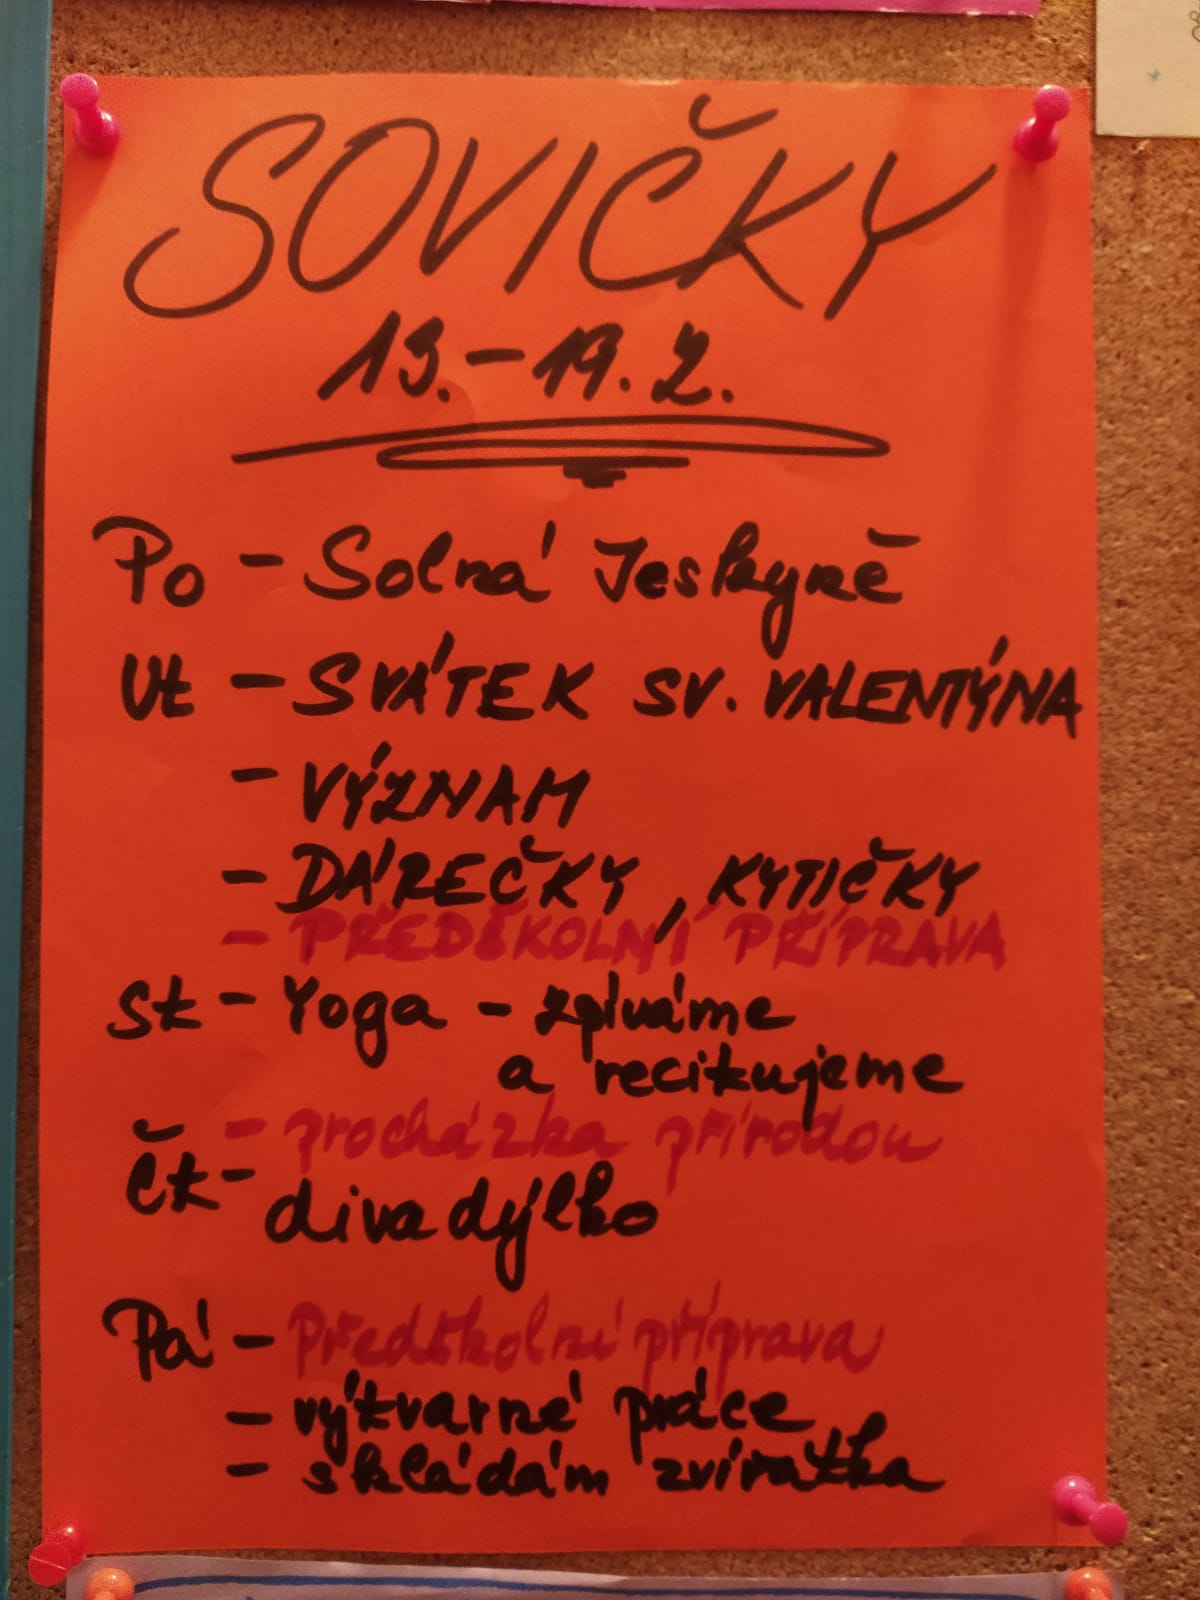 SOVIČKY
13.-19.2.
Po - Solná Jeskyně
Ut - SVÁTEK SV. VALENTÝNA
- VÝZNAM
- DÁREČKY, KYTIČKY
- PŘEDŠKOLNÍ PŘÍPRAVA
St - Yoga - zpíváme
a recitujeme
- procházka přírodou
Čt - divadýlko
Pá - Předškolní příprava
- výtvarné práce
- skládám zvířátka